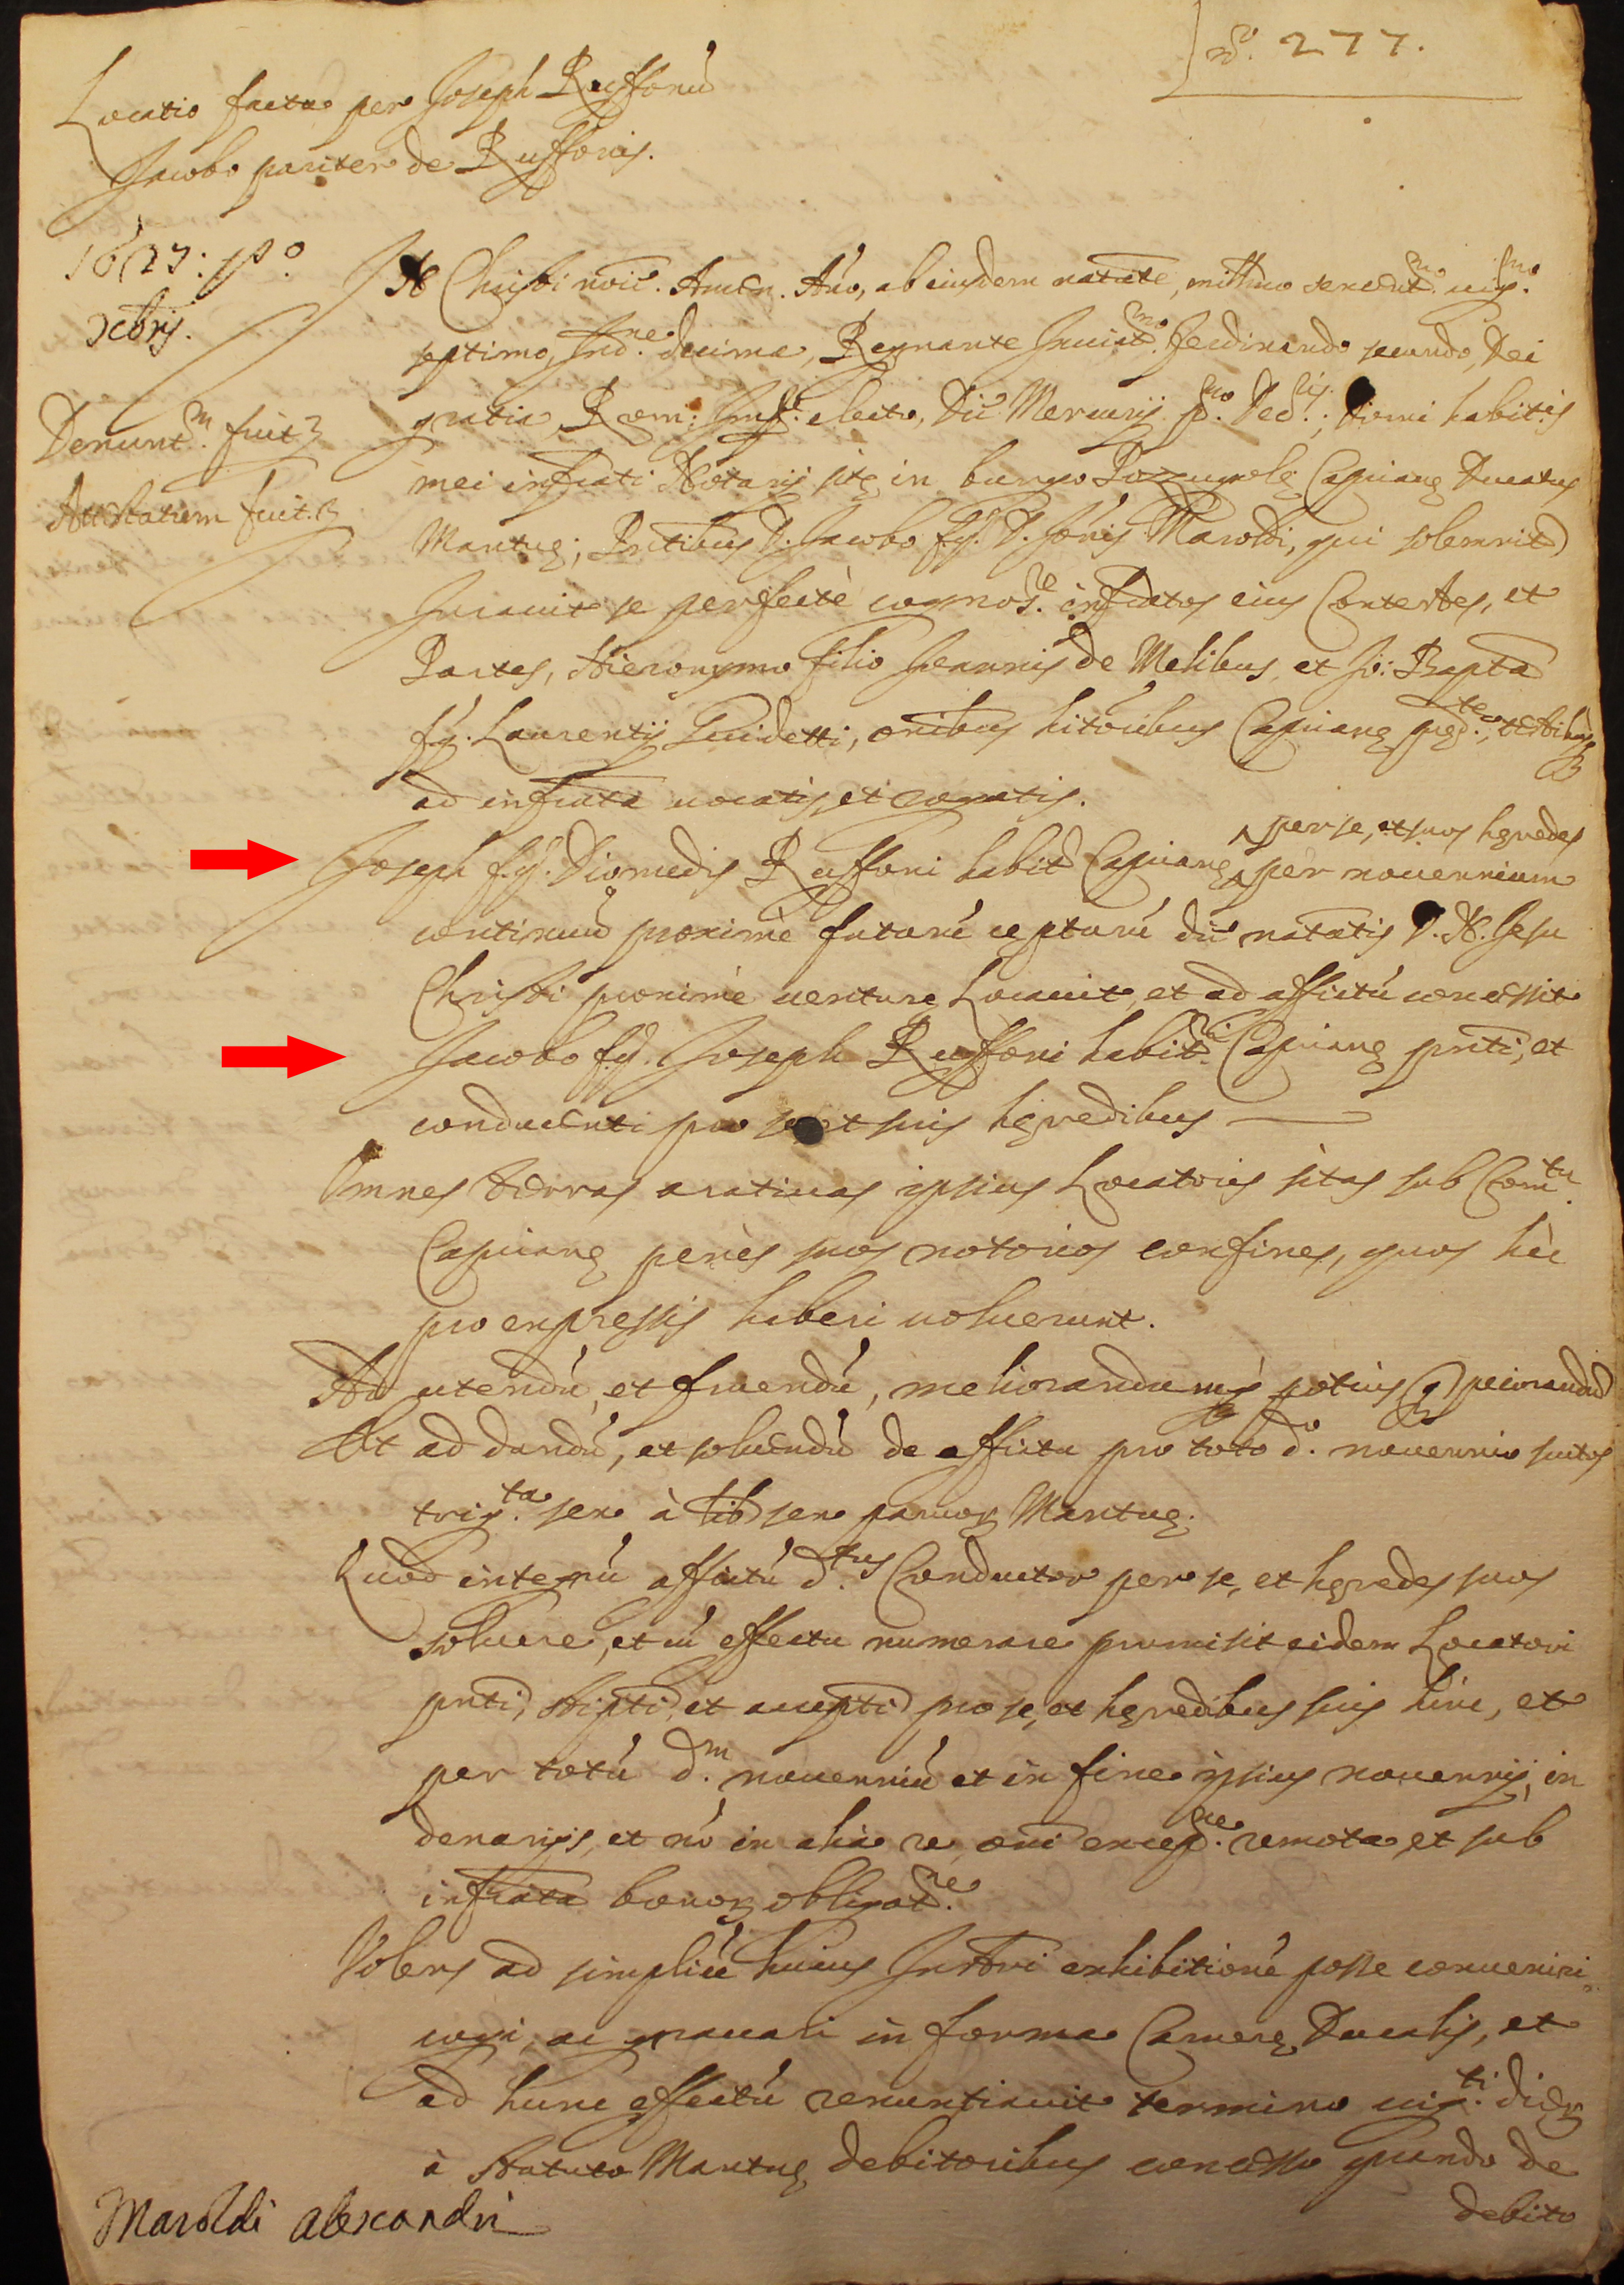 N.o 277.
Locatio facta per Joseph Ruffonú
Jacobo pariter de Ruffonis.
1627: p.o
Xcbris.
Denunt.m fuit
Attestatum fuit
In Christi noie. Amen. Año, ab eiusdem natate, mill.mo sexcent.mo vig.mo
septimo, Ind.ne decima, Regnante Invict.mo Ferdinando secundo, Dei
gratia, Rom: Imp.e electo, Die Mercurij p.mo Xcb.ris; domi habit.is
mei infrati Notarij site in burgo Pozzugnole Capriane Ducatus
Mantue; Pntibus D. Jacobo f.q. D. Jois Maroldi, qui solemnit
Juravit se perfectè cognos.re infratos eius Contestes, et
Partes, Hieronymo filio Joannis de Melibus, et Jo: Bapta
f.q. Laurentij Guidetti, oibus hitoribus Capriane pred.te, testibus
ad infrata vocatis, et rogatis.
per se, et suos heredes
Joseph f.q. Diomedis Ruffoni habit Capriane per novennium
continuú proximè futurú cepturú die natatis D. N. Jesu
Christi proximè venture Locavit, et ad affictú concessit
Jacobo f.q. Joseph Ruffoni habit.ri Capriane pnti, et
conducenti pro se et suis heredibus
Omnes terras arativas ipsius Locatoris sitas sub Com.tu
Capriane penès suos notorios confines, quos hìc
pro expressis haberi voluerunt.
Ad utendú, et fruendú, meliorandumq; potius q peiorandú
Et ad dandú, et solvendú de affictu pro toto d.o novennio scutos
trig.ta sex à lib sex parvor Mantue.
Quod integrú affictú d.tus Conductor per se, et heredes suos
solvere, et cú effectu numerare promisit eidem Locatori
pnti, stipti, et accepti pro se, et heredibus suis hinc, et
per totú d.m novenniú et in fine ipsius novennij, in
denarijs, et nó in alia re, oni excep.ne remota, et sub
infrata bonor obligat.ne
Volens ad simplicé huius Instri exhibitioné posse conveniri,
cogi, ac gravari in forma Camere Ducalis, et
ad hunc effectú renuntiavit termino vig.ti dier
à Statuto Mantue debitoribus concesso quando de
debito
Maroldi Alexandri